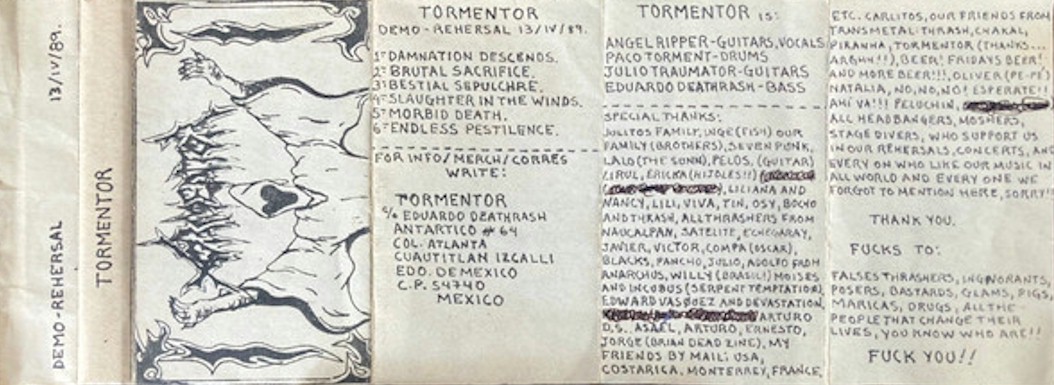 13/IV/89.
DEMO-REHERSAL
TORMENTOR
TORMENTOR
TORMENTOR
DEMO-REHERSAL 13/IV/89.
1º DAMNATION DESCENDS.
2º BRUTAL SACRIFICE.
3º BESTIAL SEPULCHRE.
4º SLAUGHTER IN THE WINDS.
5º MORBID DEATH.
6º ENDLESS PESTILENCE.
FOR INFO/MERCH/CORRES
WRITE:
TORMENTOR
c/o EDUARDO DEATHRASH
ANTARTICO # 64
COL. ATLANTA
CUAUTITLAN IZCALLI
EDO. DE MEXICO
C.P. 54740
MEXICO
TORMENTOR IS:
ANGEL RIPPER-GUITARS, VOCALS
PACO TORMENT-DRUMS
JULIO TRAUMATOR-GUITARS
EDUARDO DEATHRASH-BASS
SPECIAL THANKS:
JULITOS FAMILY, INGE (FISH) OUR
FAMILY (BROTHERS), SEVEN PUNK,
LALO (THE SUNN), PELOS, (GUITAR)
CIRUL, ERICKA (HIJOLES!!)
LILIANA AND
NANCY, LILI, VIVA, TIN, OSY, BOCHO
AND THRASH, ALL THRASHERS FROM
NAUCALPAN, SATELITE, ECHEGARAY,
JAVIER, VICTOR, COMPA (OSCAR),
BLACKS, PANCHO, JULIO, ADOLFO FROM
ANARCHUS, WILLY (BRASIL!) MOISES
AND INCUBUS (SERPENT TEMPTATION),
EDWARD VASQUEZ AND DEVASTATION.
ARTURO
D.S., ASAEL, ARTURO, ERNESTO,
JORGE (BRIAN DEAD LINE), MY
FRIENDS BY MAIL: USA,
COSTARICA, MONTERREY, FRANCE,
ETC. CARLITOS, OUR FRIENDS FROM
TRANSMETAL-THRASH, CHAKAL,
PIRANHA, TORMENTOR (THANKS...
ARGHH!!), BEER! FRIDAYS BEER!
AND MORE BEER!!!, OLIVER (PE-PE)
NATALIA, NO, NO, NO! ESPERATE!!
AHÍ VA!!! PELUCHIN,
ALL HEADBANGERS, MOSHERS,
STAGE DIVERS, WHO SUPPORT US
IN OUR REHERSALS, CONCERTS, AND
EVERY ON WHO LIKE OUR MUSIC IN
ALL WORLD AND EVERY ONE WE
FORGOT TO MENTION HERE, SORRY!!
THANK YOU.
FUCKS TO:
FALSES THRASHERS, INGNORANTS,
POSERS, BASTARDS, GLAMS, PIGS,
MARICAS, DRUGS, ALL THE
PEOPLE THAT CHANGE THEIR
LIVES, YOU KNOW WHO ARE!!
FUCK YOU!!